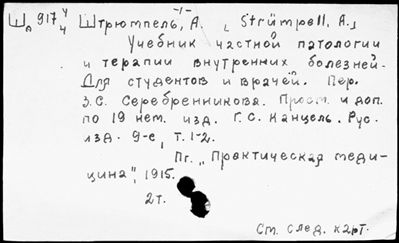 -1-
Ша 917 4/4 Штрюмпель, А. [Strümpell, A.]
Учебник частной патологии
и терапии внутренних болезней.
Для студентов и врачей. Пер.
З.С. Серебренникова. Просм. и доп.
по 19 нем. изд. Г.С. Канцель. Рус.
изд. 9-е, т. 1-2.
Пг., "Практическая меди-
цина", 1915.
2т.
См. след. карт.